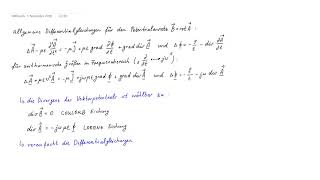 Mittwoch, 4. November 2020
Allgemeine Differentialgleichungen für den Potentialansatz B⃗ = rot A⃗ :
ΔA⃗ - με ∂²A⃗/∂t² = -μJ⃗ + με grad ∂ϕ/∂t + grad div A⃗ und Δϕ = -ρ/ε - ∂/∂t div A⃗
für zeitharmonische Größen im Frequenzbereich (∂/∂t ⟺ jω):
ΔA⃗ + με ω² A⃗ = -μJ⃗ + jωμε grad ϕ + grad div A⃗ und Δϕ = -ρ/ε - jω div A⃗
↳ die Divergenz des Vektorpotentials ist wählbar zu:
div A⃗ = 0 COULOMB Eichung
div A⃗ = -jωμε ϕ LORENZ Eichung
↳ vereinfacht die Differentialgleichungen